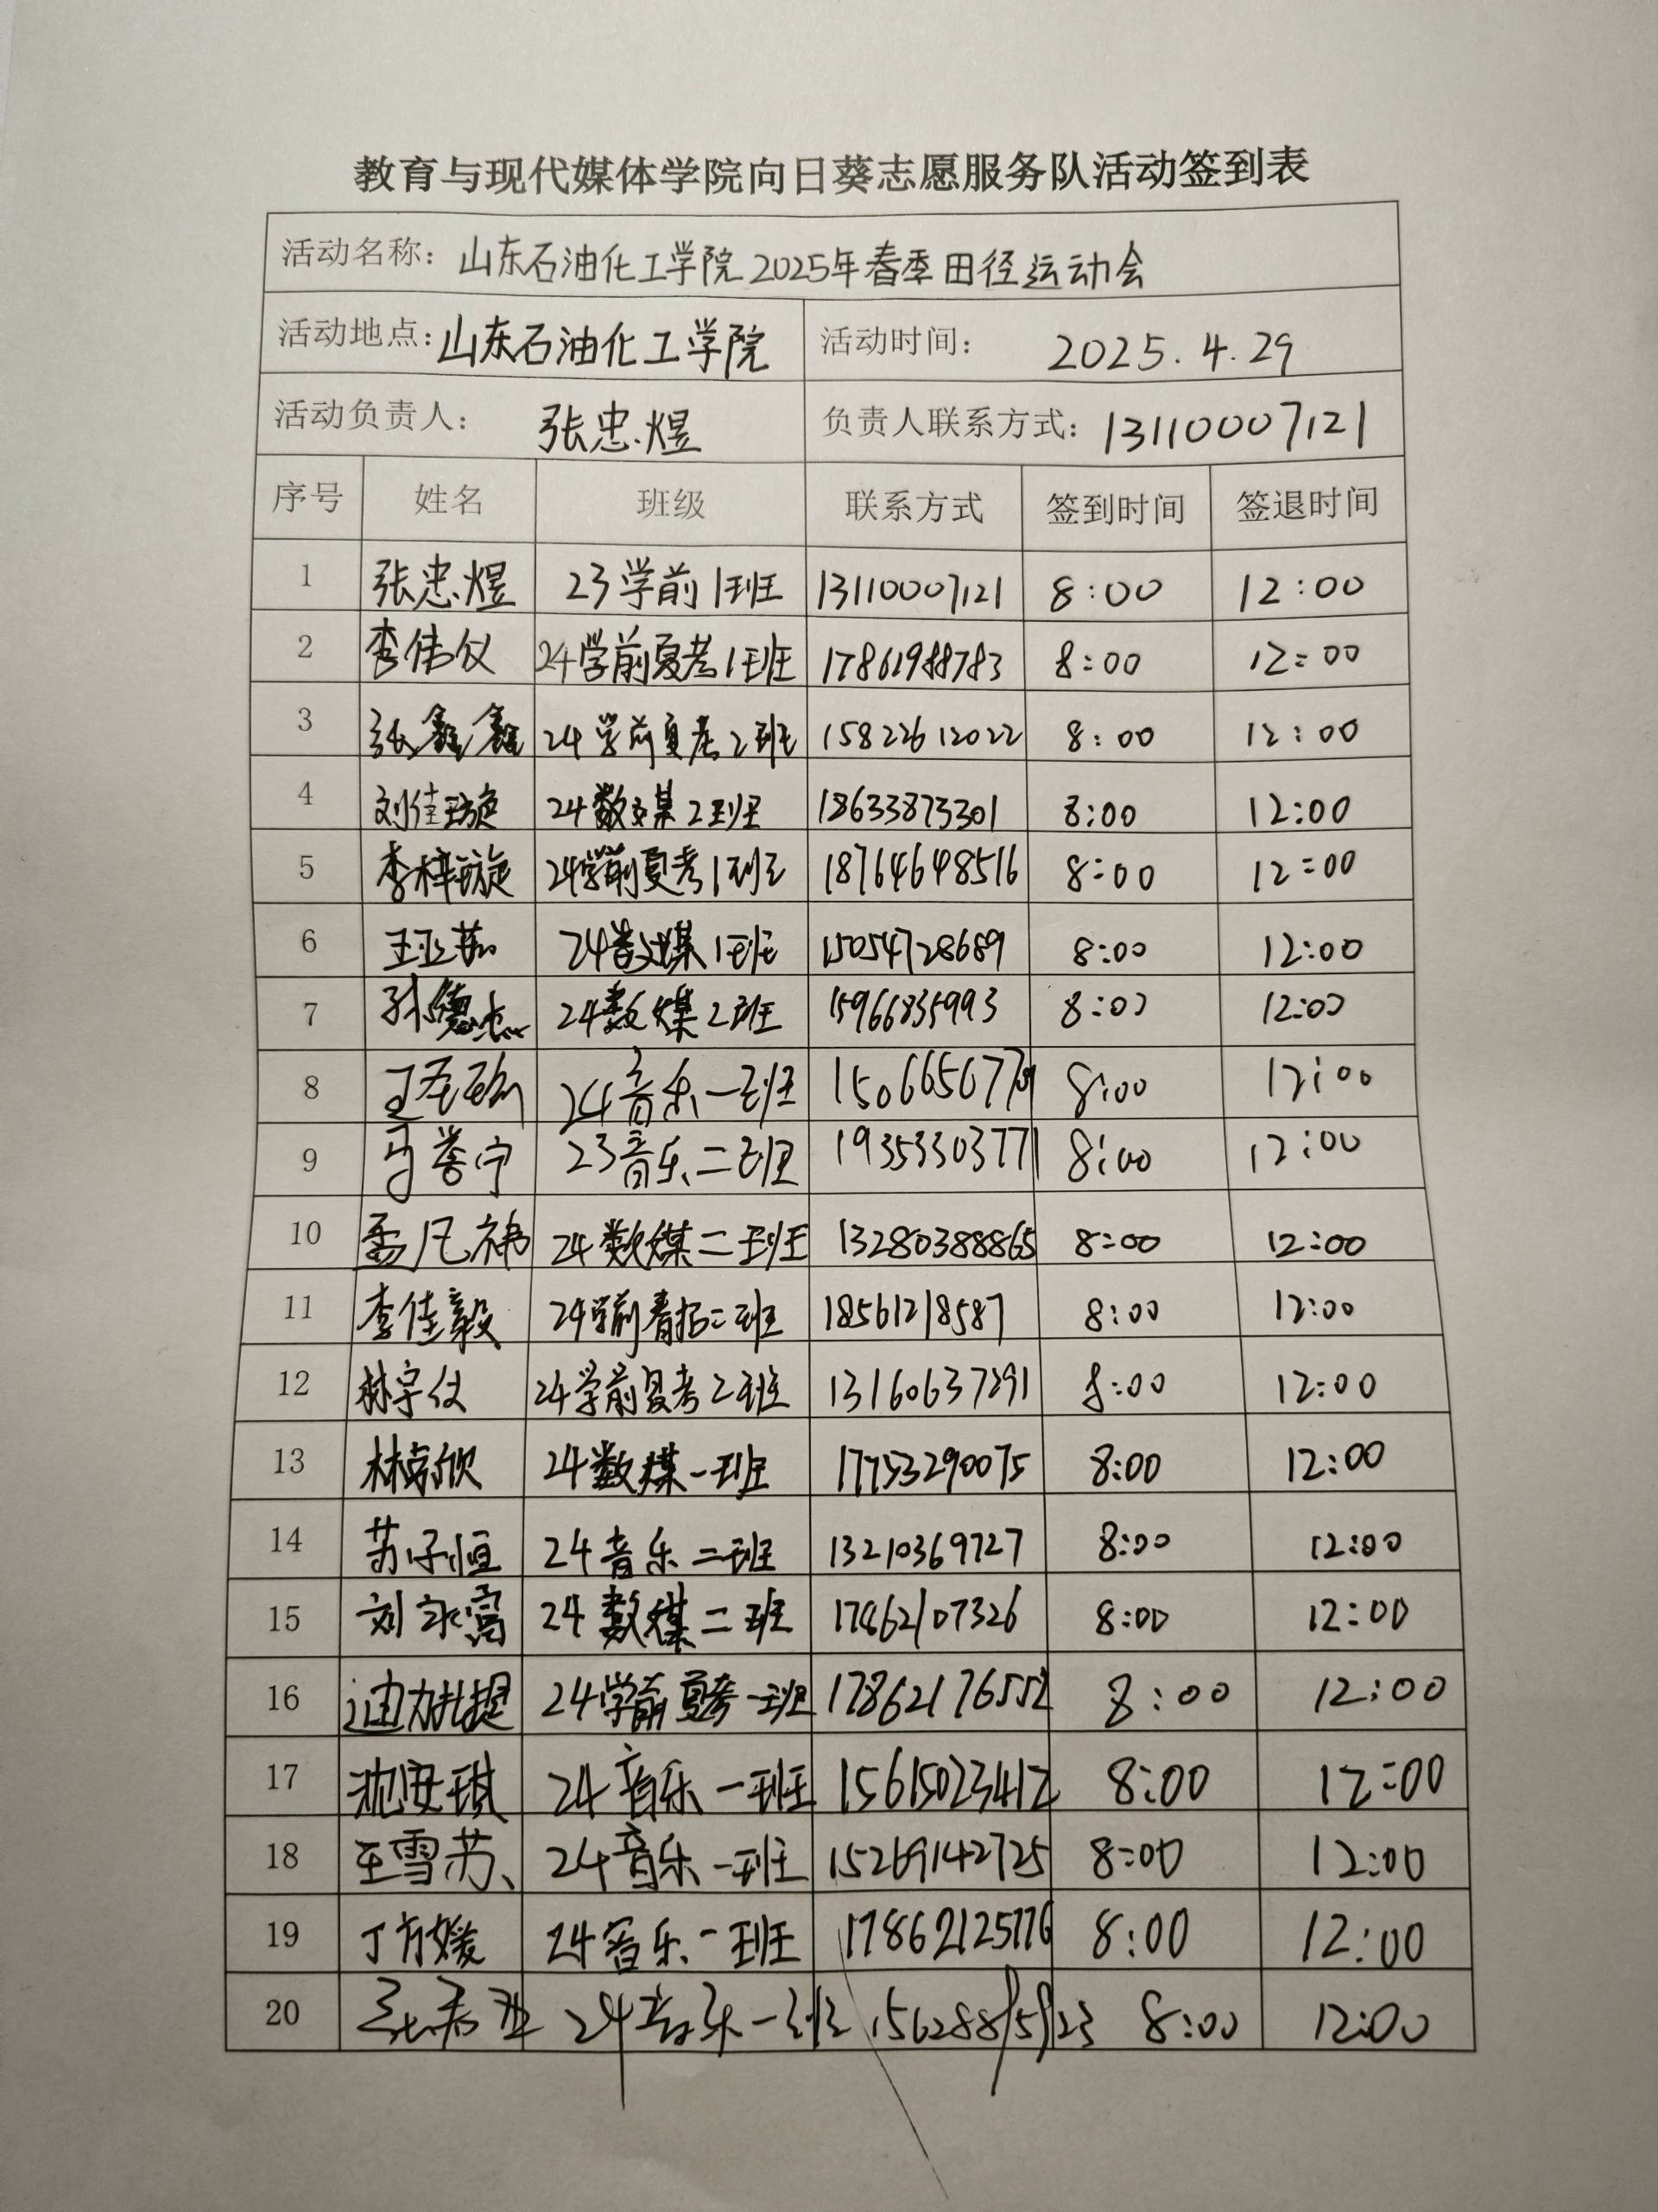 教育与现代媒体学院向日葵志愿服务队活动签到表
活动名称：山东石油化工学院2025年春季田径运动会
活动地点：山东石油化工学院 活动时间： 2025.4.29
活动负责人： 张忠煜 负责人联系方式：13110007121
序号 姓名 班级 联系方式 签到时间 签退时间
1 张忠煜 23学前1班 13110007121 8:00 12:00
2 李伟仪 24学前夏考1班 17861988783 8:00 12:00
3 张鑫鑫 24学前夏考2班 15822612022 8:00 12:00
4 刘佳璇 24数媒2班 18633873301 8:00 12:00
5 李梓璇 24学前夏考1班 18764648516 8:00 12:00
6 王亚茹 24数媒1班 15054728689 8:00 12:00
7 孙德杰 24数媒2班 15966835993 8:00 12:00
8 24音乐一班 8:00 12:00
9 马誉宁 23音乐二班 19353303771 8:00 12:00
10 孟凡祎 24数媒二班 13280388865 8:00 12:00
11 李佳毅 24学前春招二班 18561218587 8:00 12:00
12 林宇仪 24学前夏考2班 13160637291 8:00 12:00
13 24数媒一班 17753290075 8:00 12:00
14 苏子恒 24音乐二班 13210369727 8:00 12:00
15 刘 24数媒二班 17862107326 8:00 12:00
16 迪力扎提 24学前夏考一班 17862176552 8:00 12:00
17 沈安琪 24音乐一班 15615023412 8:00 12:00
18 王雪苏 24音乐一班 15269142725 8:00 12:00
19 丁方媛 24音乐一班 17862125776 8:00 12:00
20 24音乐一班 8:00 12:00